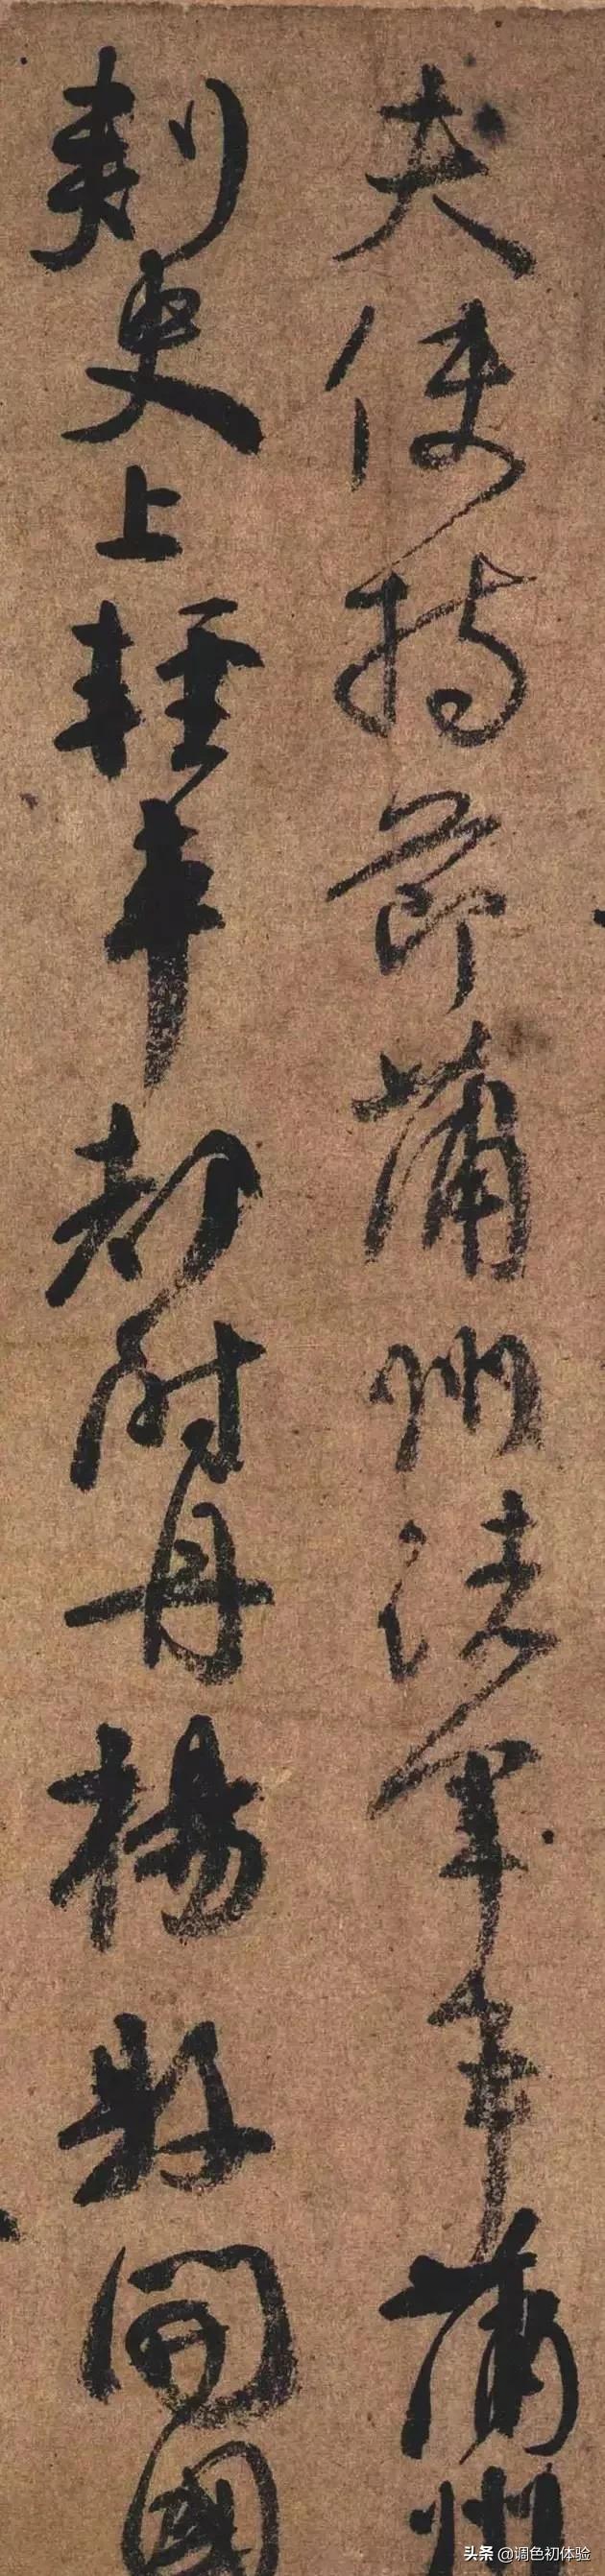 夫使持節蒲州諸軍事蒲州
刺史上輕車都尉丹楊縣開國
头条 @调色初体验